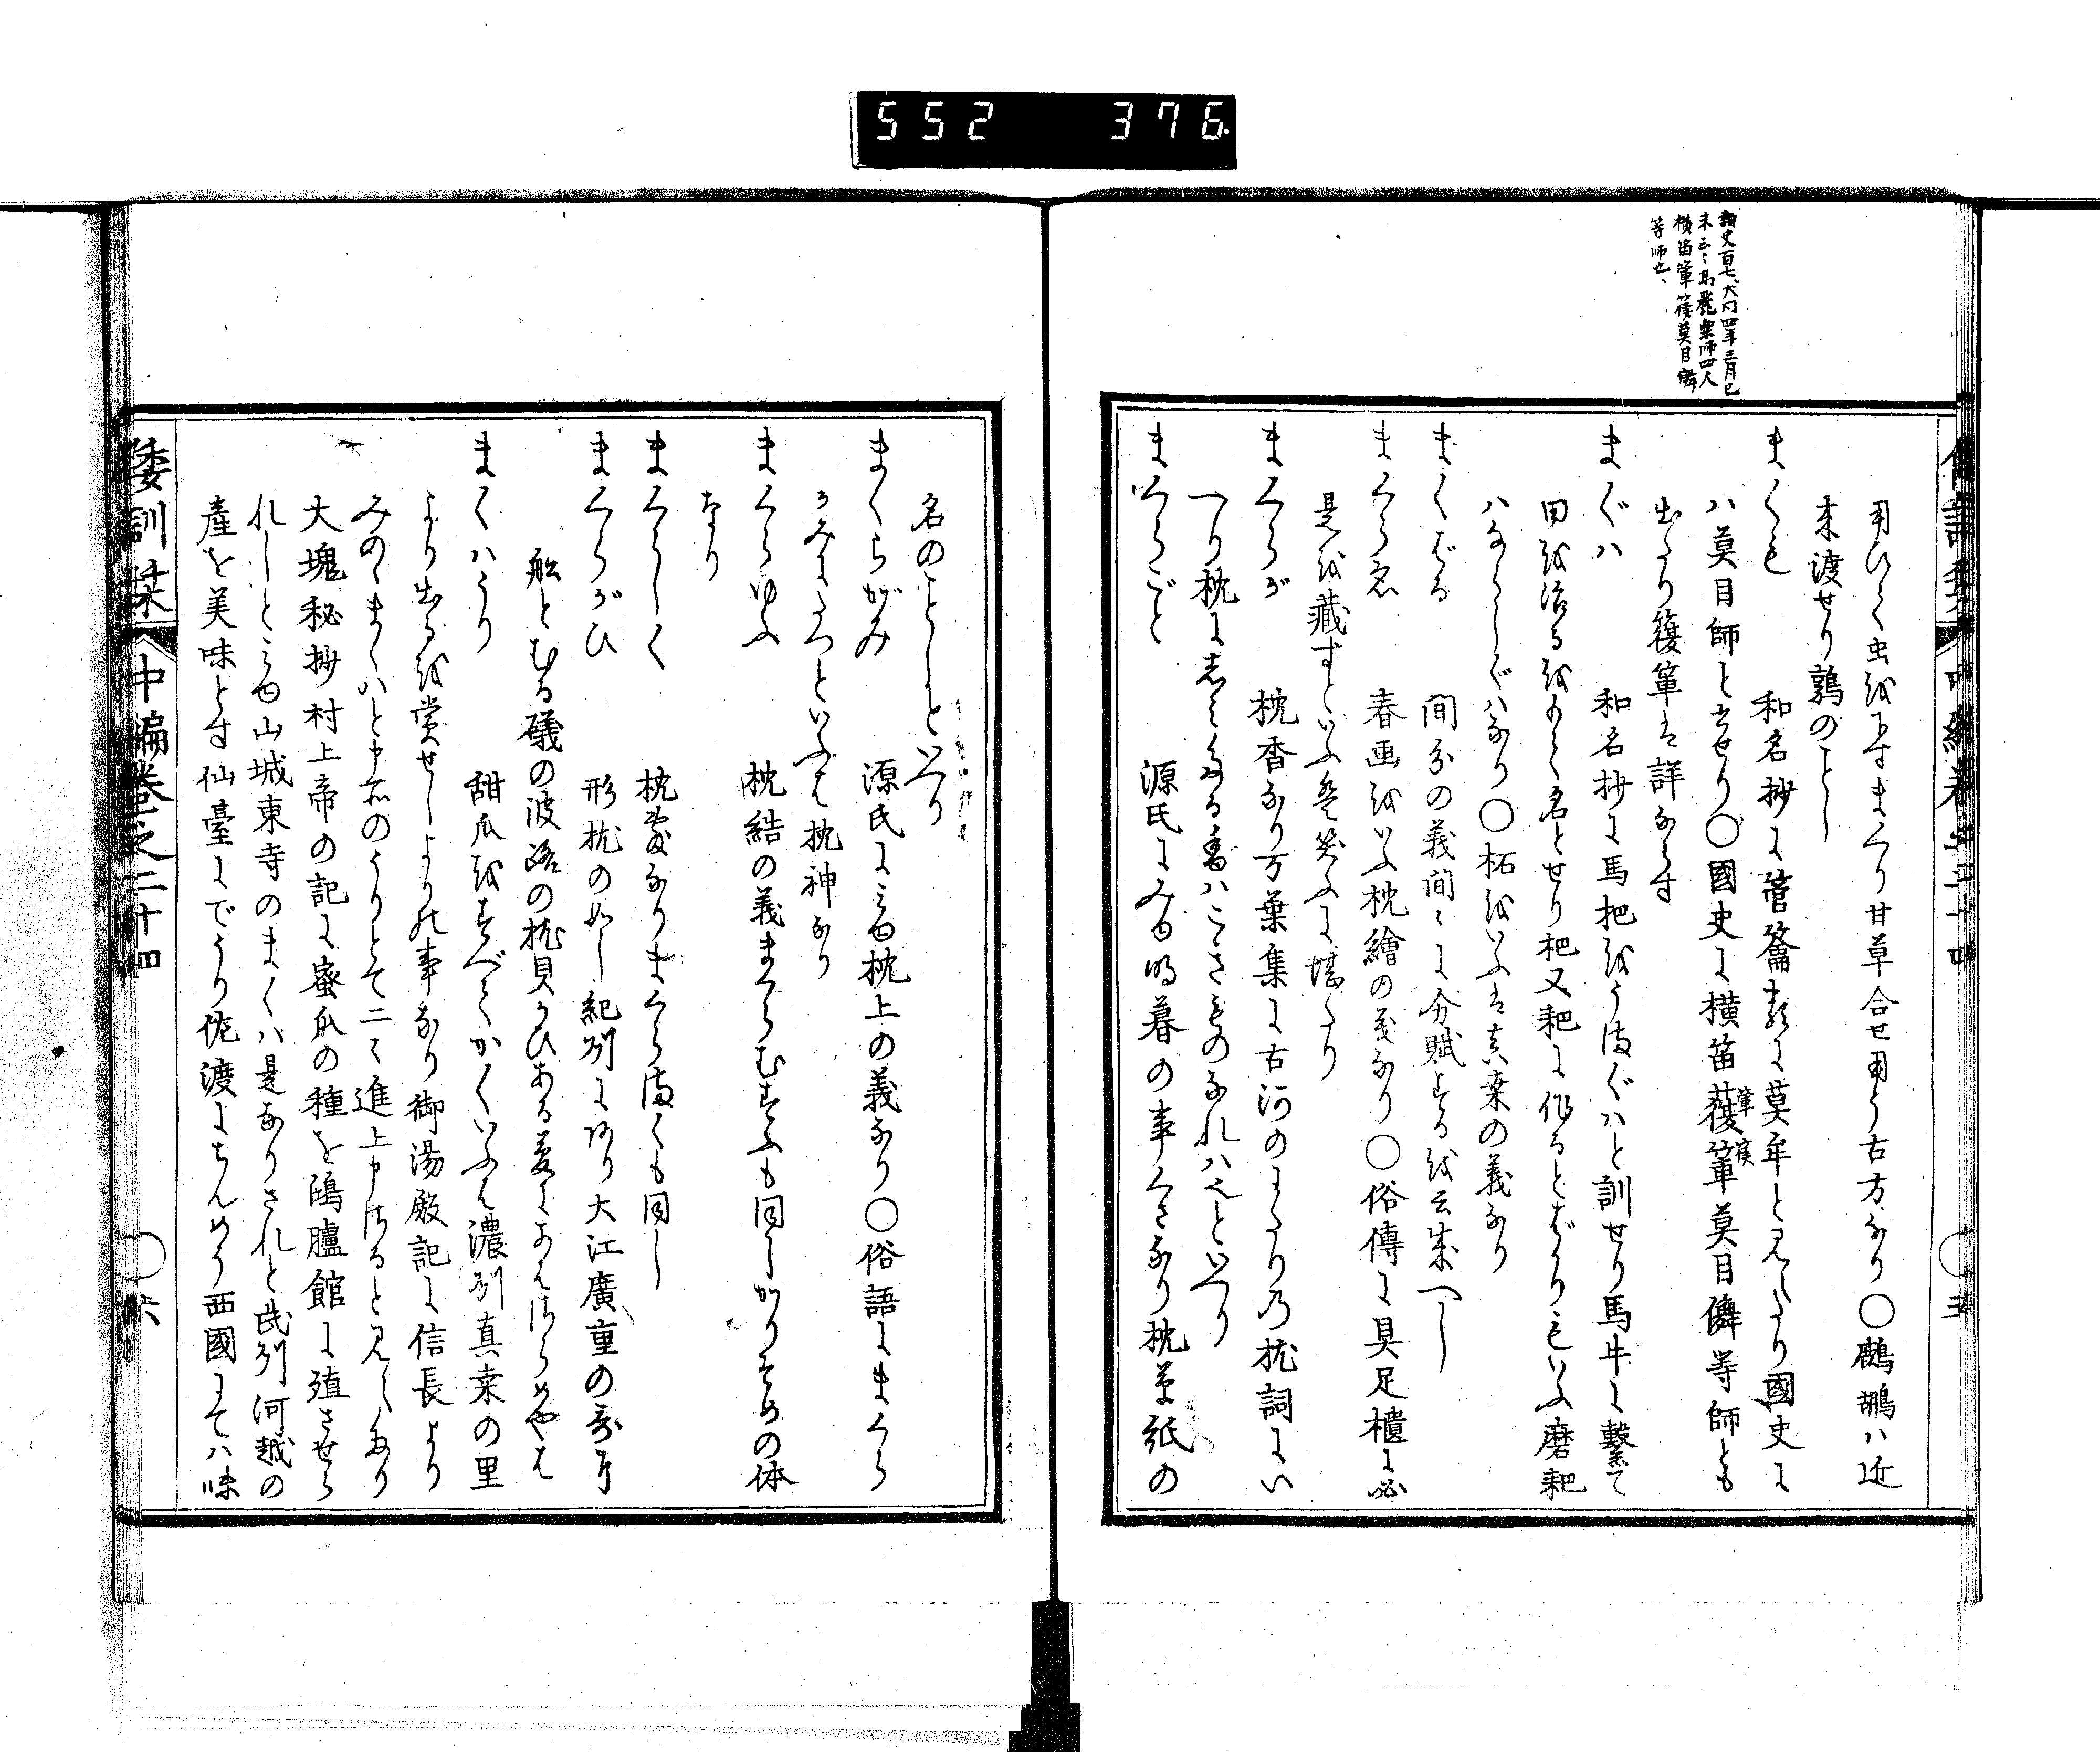 552 376
類史百七、大同四年三月己
未云々高麗樂師四人
横笛箪篌莫目儛
等師也、
用ひく虫を下すまくり甘草合せ用う古方なり〇鷓鴣ハ近
來渡せり鶉のことし
まくも 和名抄に管籥類に莫牟と見えたり國史に
ハ莫目師と出せり〇國史に横笛篌箪莫目儛等師とも
箪篌
出たり篌箪は詳ならす
まぐハ 和名抄に馬把をうまぐハと訓せり馬牛に繫て
田を治るをかく名とせり杷又耙に作るとばかりもいふ磨耙
ハならしぐハなり〇柘をいふは真桑の義なり
まくばる 間分の義間々に分賦するを云成へし
まくらゑ 春画をいふ枕繪の義なり〇俗傳に具足櫃に必
是を藏すといふ咲笑ふに堪たり
まくらが 枕香なり万葉集に古河のわたりの枕詞にい
へり枕にしたる香ハこきものなれハ也といへり
まくらごと 源氏にみゆ明暮の事くさなり枕草紙の
名のことしといへり
まくらがみ 源氏にみゆ枕上の義なり〇俗語にまくら
がみにたつといふは枕神なり
まくらゆふ 枕結の義まくらむすふも同しかりそめの体
なり
まくらしく 枕敷なりまくらまくも同し
まくらがひ 形枕の如し紀州にあり大江廣重の哥に
船とむる礒の波路の枕貝かひある夢にあはさらめやは
まくハうり 甜瓜をすべてかくいふは濃州真桑の里
より出るを賞せしよりの事なり御湯殿記に信長より
みのゝまくハと申所のうりとて二つ進上申さると見えたり
大塊秘抄村上帝の記に蜜瓜の種を鴻臚館に殖させら
れしとみゆ山城東寺のまくハ是なりされと武州河越の
産を美味とす仙臺にでうり佐渡にちんめう西國にてハ味
倭訓栞 中編巻之二十四 〇六